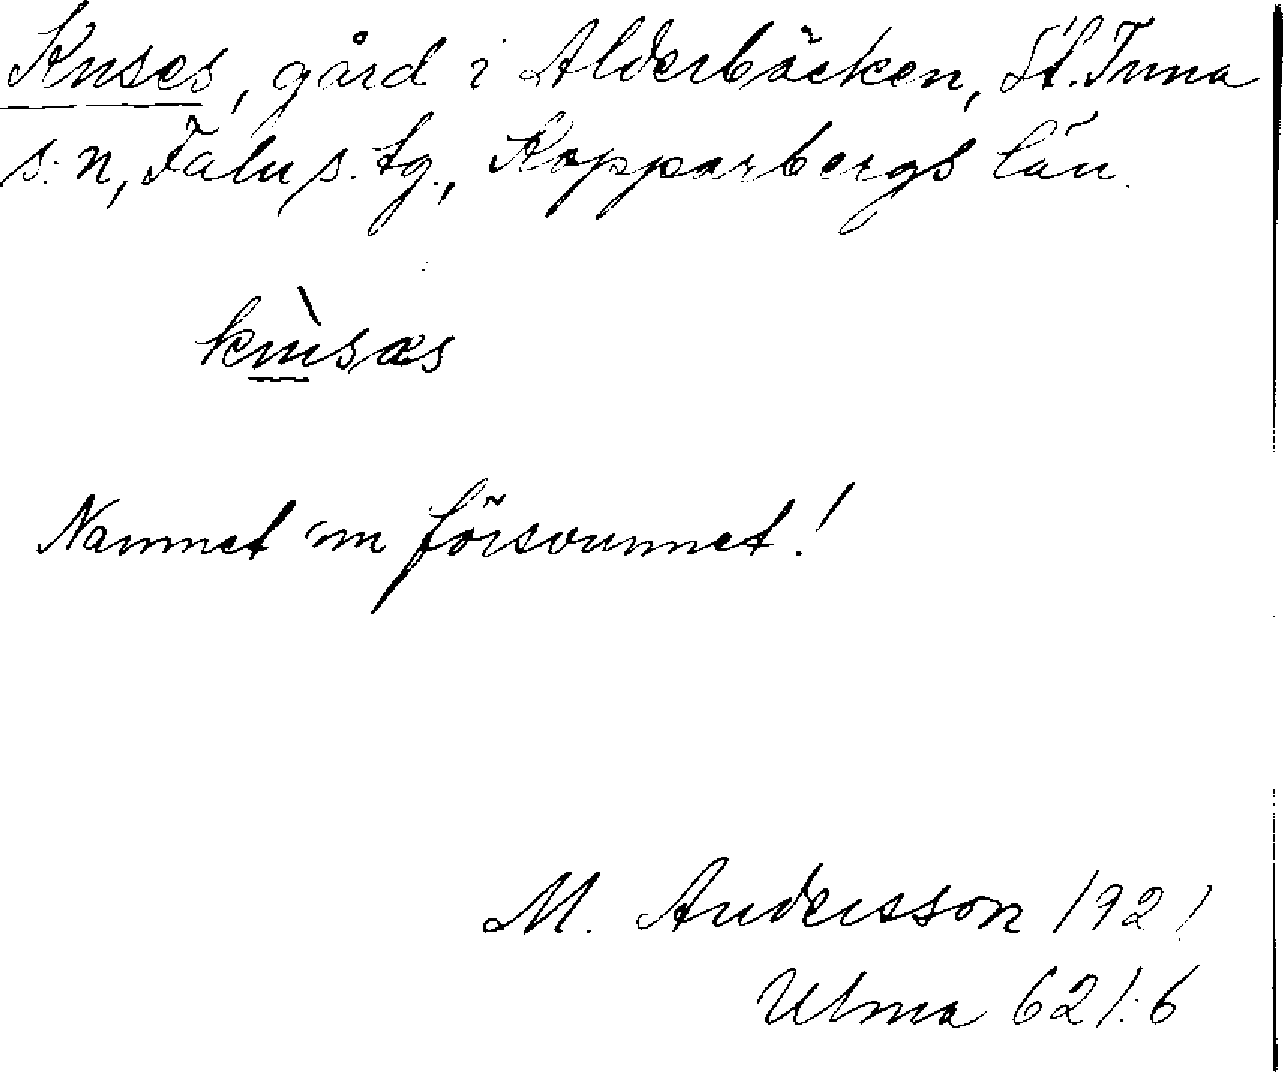 Knses, gård i Alderbäcken, St. Tuna
s:n, Falu s. tg., Kopparbergs län.
Namnet nu försvunnet!
M. Andersson 1921
Ulma 621:6